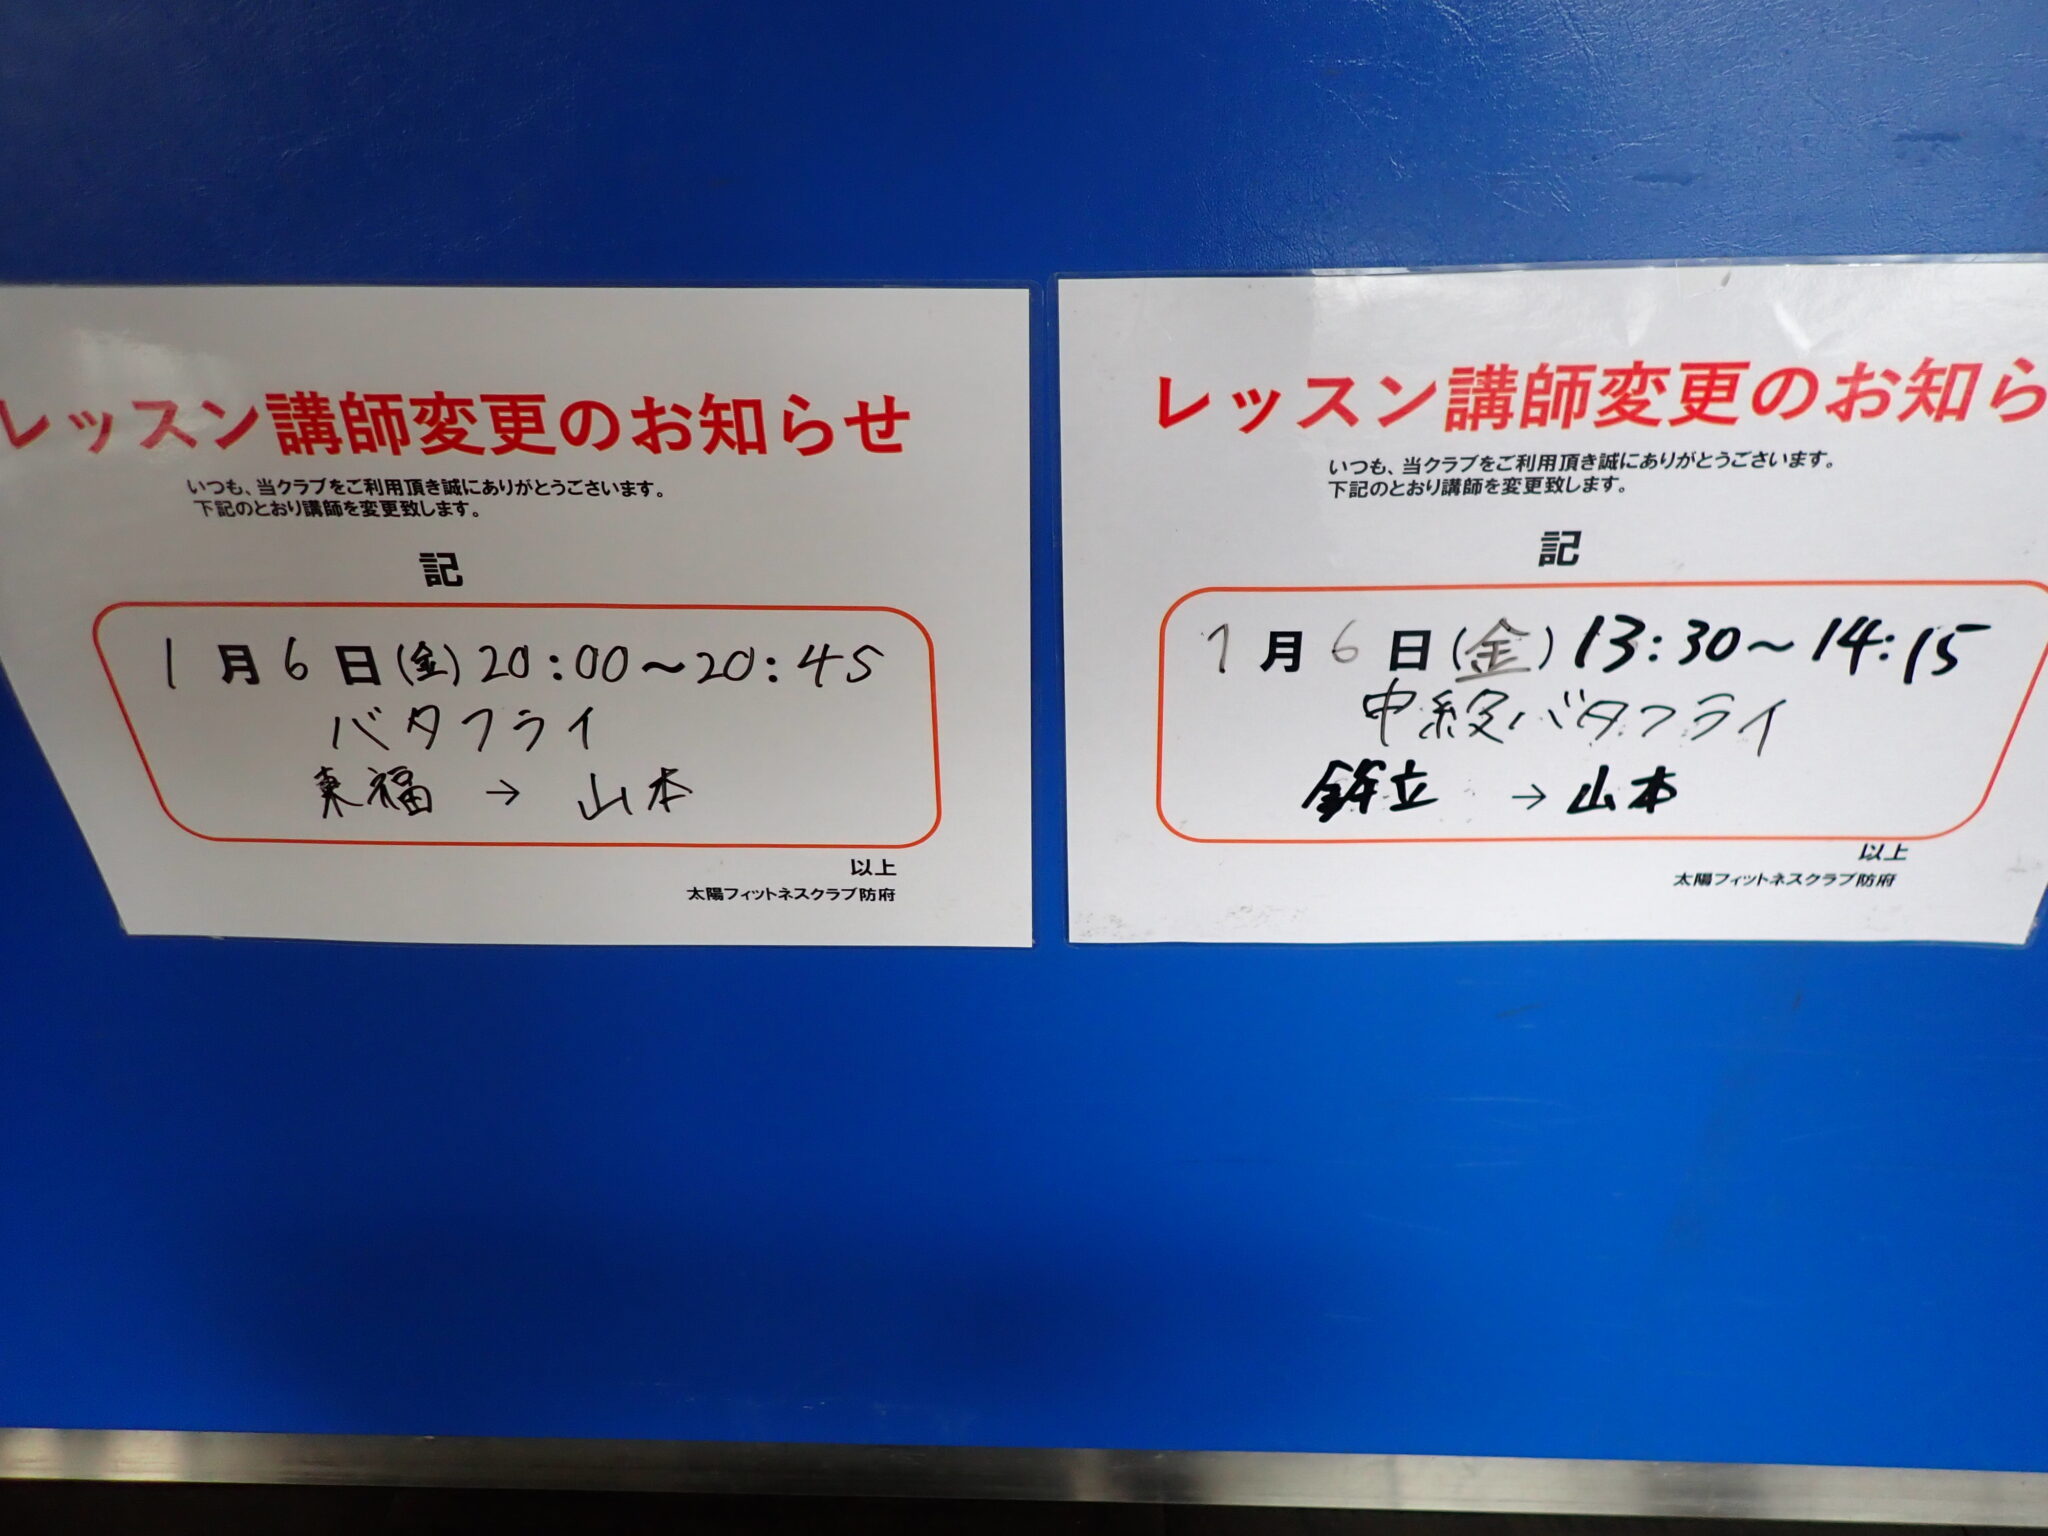 レッスン講師変更のお知らせ
いつも、当クラブをご利用頂き誠にありがとうございます。
下記のとおり講師を変更致します。
記
1月6日(金)20:00〜20:45
バタフライ
来福 → 山本
以上
太陽フィットネスクラブ防府
レッスン講師変更のお知ら
いつも、当クラブをご利用頂き誠にありがとうございます。
下記のとおり講師を変更致します。
記
1月6日(金)13:30〜14:15
中級バタフライ
鉾立 → 山本
以上
太陽フィットネスクラブ防府